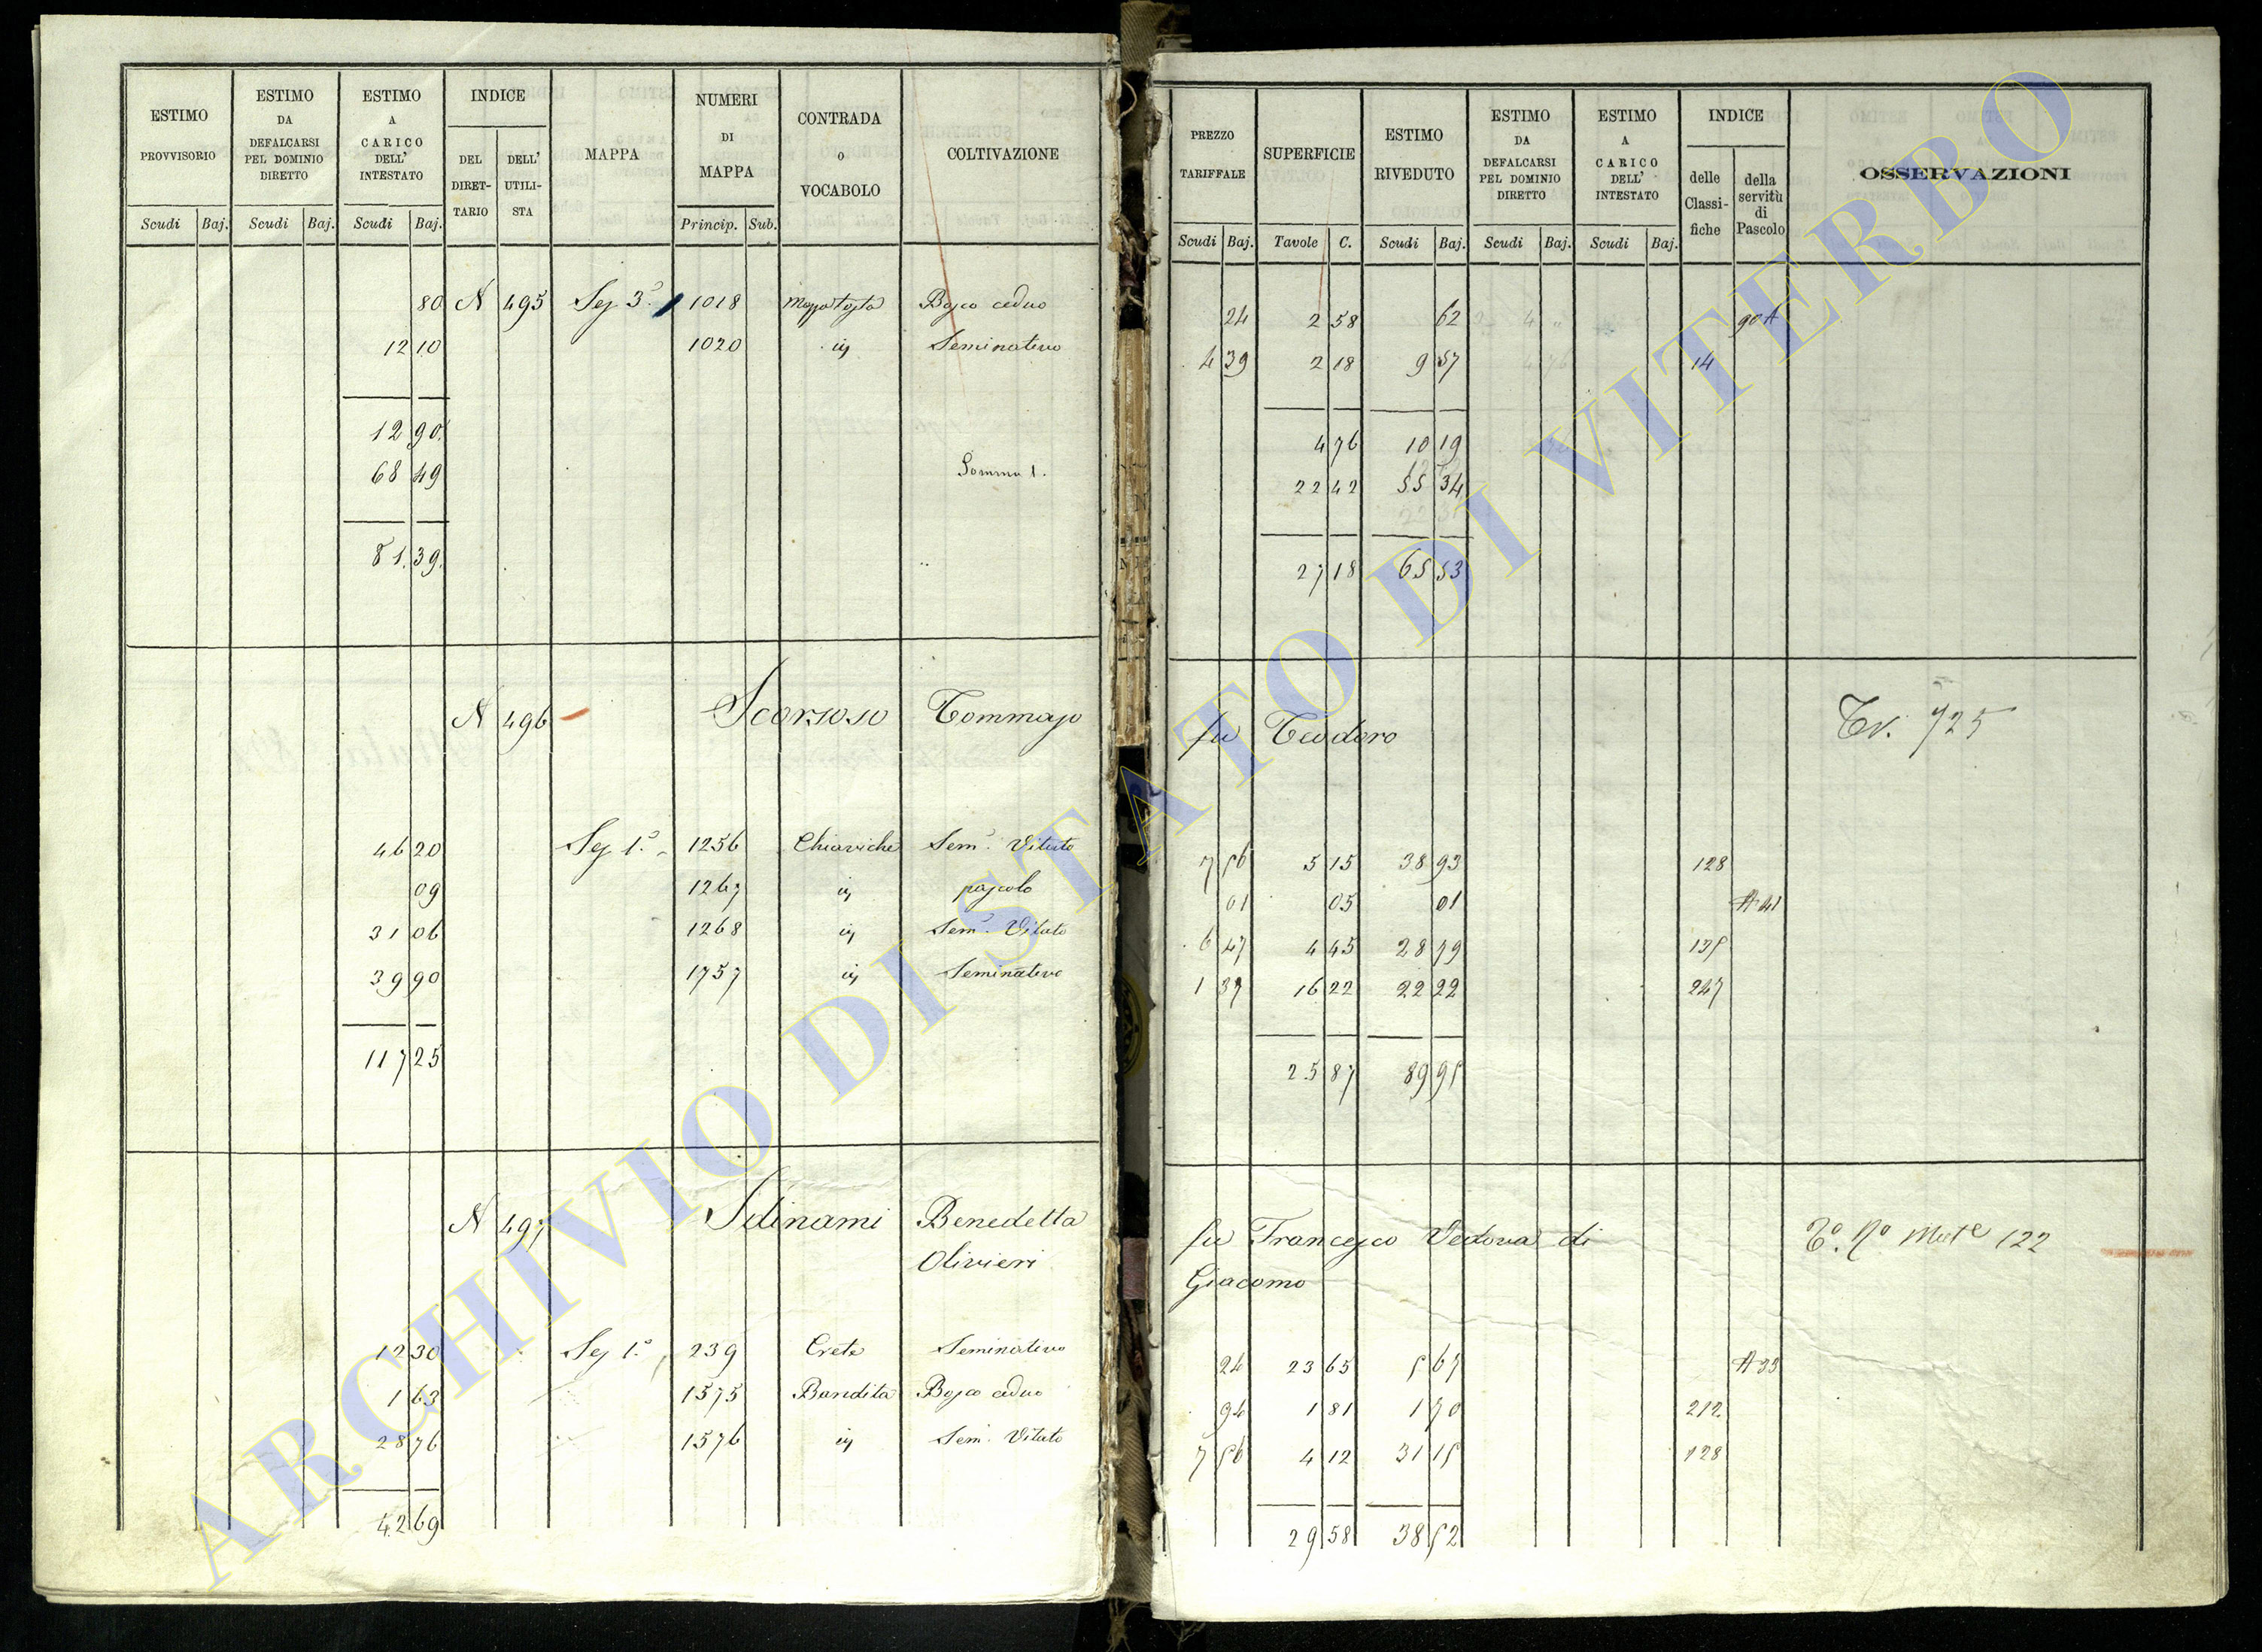 ESTIMO PROVVISORIO Scudi Baj.
ESTIMO DA DEFALCARSI PEL DOMINIO DIRETTO Scudi Baj.
ESTIMO A CARICO DELL' INTESTATO Scudi Baj.
INDICE DEL DIRET-TARIO DELL' UTILI-STA
MAPPA
NUMERI DI MAPPA Princip. Sub.
CONTRADA O VOCABOLO
COLTIVAZIONE
80 N 495 Sez 3ª 1018 Bosco ceduo
12 10 1020 ivi Seminativo
12 90
68 49 Somma 1.
81. 39.
N 496 Scorsoso Tommaso
46 20 Sez 1ª 1256 Chiaviche Semº Vitato
09 1267 ivi pascolo
31 06 1268 ivi Semº Vitato
39 90 1757 ivi Seminativo
117 25
N 497 Sdinami Benedetta
Olivieri
12 30 Sez 1ª 239 Crete Seminativo
1 63 1575 Bandita Bosco ceduo
28 76 1576 ivi Sem. Vitato
42 69
PREZZO TARIFFALE Scudi Baj.
SUPERFICIE Tavole C.
ESTIMO RIVEDUTO Scudi Baj.
ESTIMO DA DEFALCARSI PEL DOMINIO DIRETTO Scudi Baj.
ESTIMO A CARICO DELL' INTESTATO Scudi Baj.
INDICE delle Classi-fiche della servitù di Pascolo
OSSERVAZIONI
24 2 58 62 90 A
4 39 2 18 9 57 14
4 76 10 19
22 42 55 34
27 18 65 53
fu Teodoro Tr. 725
7 56 5 15 38 93 128
01 05 01 A 41
6 47 4 45 28 79 135
1 37 16 22 22 22 247
25 87 89 95
fu Francesco Vedova di Tº. Nº Mutᵉ 122
Giacomo
24 23 65 5 67 A 33
94 1 81 1 70 212
7 56 4 12 31 15 128
29 58 38 52
ARCHIVIO DI STATO DI VITERBO